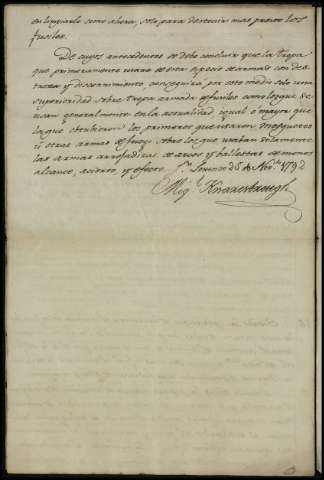 en limpiarlo como ahora, solo para destruir mas presto los
fusiles.
De cuyos antecedentes se debe concluir que la tropa
que primeramente usare de esta especie de armas con des-
treza y discernimiento conseguira por este medio sola una
superioridad sobre tropa armada de fusiles como los que se
usan generalmente en la actualidad igual ó mayor que
la que obtubieron los primeros que usaron mosquetes
ú otras armas de fuego sobre los que usaban solamente
las armas arrojadizas de arcos y ballestas de menos
alcance, acierto, y efecto. 1792
Mig.l Knaresbrough